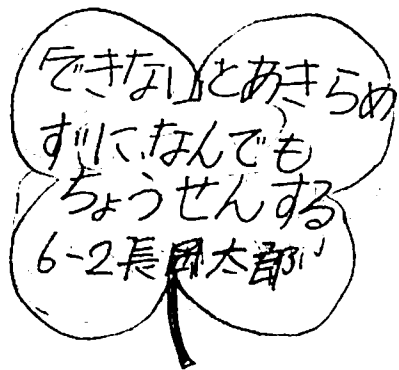 「できない」とあきらめ
ずに、なんでも
ちょうせんする
6-2長岡太郎